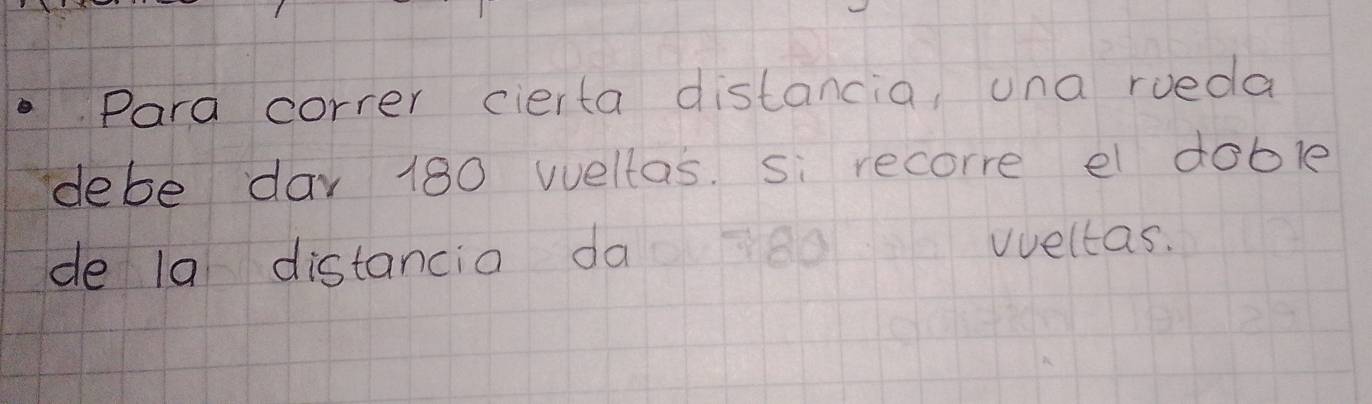 • Para correr cierta distancia, una rueda
debe dar 180 vueltas. Si recorre el doble
de la distancia da vueltas.